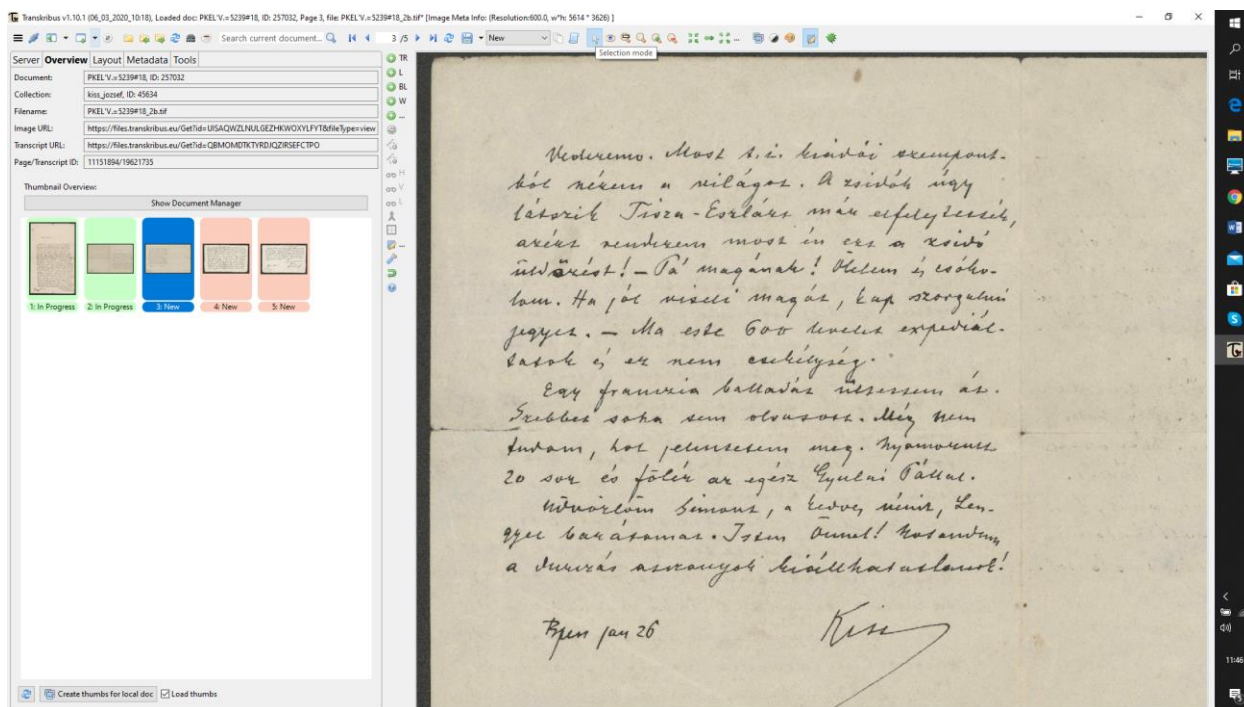 Transkribus v1.10.1 (06_03_2020_10:18), Loaded doc: PKEL'V.=5239#18, ID: 257032, Page 3, file: PKEL'V.=5239#18_2b.tif* [Image Meta Info: (Resolution:600.0, w*h: 5614 * 3626) ]
Search current document... 3 /5 New
Selection mode
Server Overview Layout Metadata Tools
Document: PKEL'V.=5239#18, ID: 257032
Collection: kiss_jozsef, ID: 45634
Filename: PKEL'V.=5239#18_2b.tif
Image URL: https://files.transkribus.eu/Get?id=UISAQWZLNULGEZHKWOXYLFYT&fileType=view
Transcript URL: https://files.transkribus.eu/Get?id=QBMOMDTKTYRDJQZIRSEFCTPO
Page/Transcript ID: 11151894/19621735
Thumbnail Overview:
Show Document Manager
1: In Progress 2: In Progress 3: New 4: New 5: New
Create thumbs for local doc Load thumbs
TR
L
BL
W
...
H
V
L
...
Vederemo. Most t.i. kiadói szempont-
ból nézem a világot. A zsidók úgy
látszik Tisza-Eszlárt már elfelejtették,
azért rendezem most én ezt a zsidó
üldözést! – Pá magának! Ölelem és csóko-
lom. Ha jól viseli magát, kap szorgalmi
jegyet. – Ma este 600 levelet expediál-
tatok és ez nem csekélység.
Egy franczia balladát ültettem át.
Szebbet soha sem olvasott. Még nem
tudom, hol jelentetem meg. Nyomorult
20 sor és fölér az egész Gyulai Pállal.
Üdvözlöm Simont, a kedves nénit, Len-
gyel barátomat. Isten Önnel!
a asszonyok kiállhatatlanok!
Bpest jan 26
Kiss
11:46